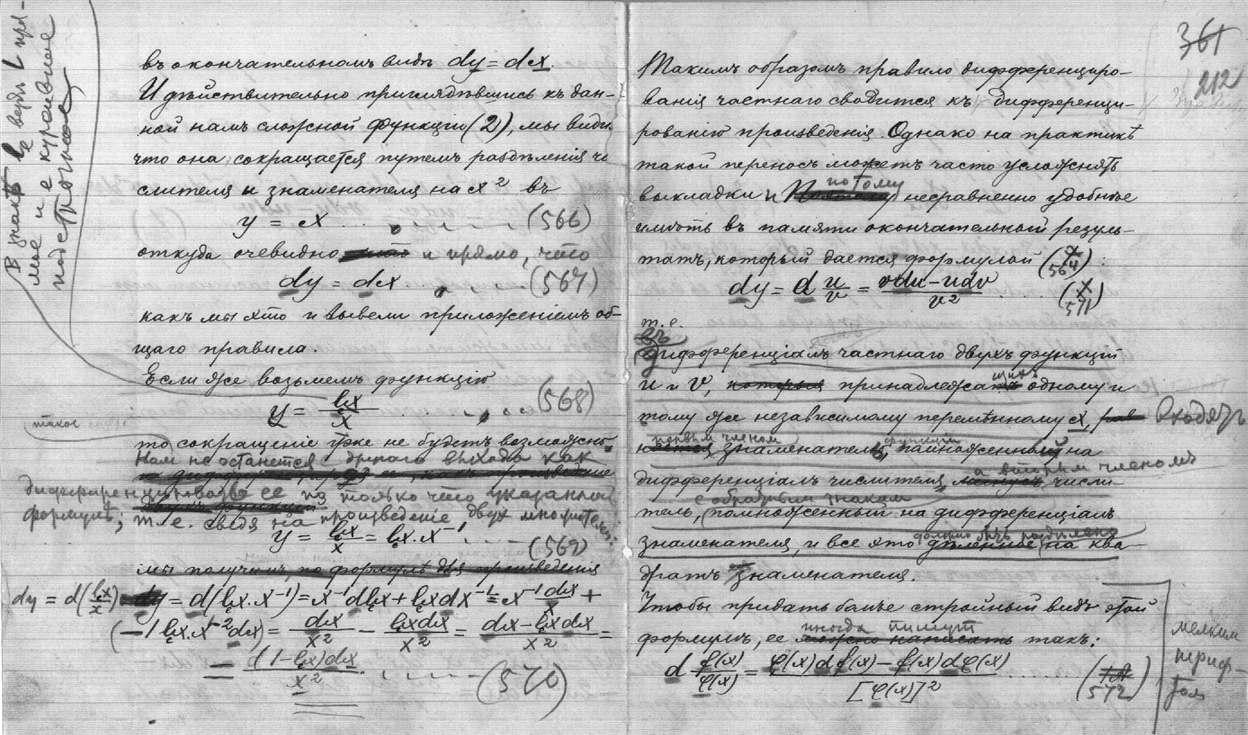 въ окончательномъ видѣ dy = dx.
И дѣйствительно приглядѣвшись къ дан-
ной намъ сложной функціи (2), мы видимъ
что она сокращается путемъ раздѣленія чи
слителя и знаменателя на x² въ
y = x . . . . . . . (566)
откуда очевидно и прямо, что
dy = dx . (567)
какъ мы это и вывели приложеніемъ об-
щаго правила.
Если же возьмемъ функцію
y = lx/x . . . . . (568)
такое
то сокращеніе уже не будетъ возможно.
Намъ не останется другого выхода какъ
дифференцировать ее по только что указанной
формулѣ; т.е. сведя на произведеніе двухъ множителей:
y = lx/x = lx·x⁻¹ . . . . (569)
мы получимъ, по формулѣ для произведенія
dy = d(lx/x) = d(lx·x⁻¹) = x⁻¹dlx + lxdx⁻¹ = x⁻¹dx/x +
(−1 lx·x⁻²dx) = dx/x² − lxdx/x² = dx−lxdx/x² =
= (1−lx)dx/x² . . . . . (570)
В знакѣ l
подстрочное
361
212
Такимъ образомъ правило дифференциро-
ванія частнаго сводится къ дифференци-
рованію произведенія. Однако на практикѣ
такой переносъ можетъ часто усложнять
выкладки и потому несравненно удобнѣе
имѣть въ памяти окончательный резуль-
татъ, который дается формулой (564):
dy = d u/v = vdu − udv/v² . . . (571)
т.е.
Дифференціалъ частнаго двухъ функцій
u и v, которыя принадлежащихъ одному и
тому же независимому перемѣнному x, входятъ
первымъ членомъ знаменатель функціи помноженный на
дифференціалъ числителя а вторымъ членомъ числи-
съ обратнымъ знакомъ
тель, помноженный на дифференціалъ
знаменателя, и все это должно быть раздѣлено на ква-
дратъ знаменателя.
Чтобы придать болѣе стройный видъ этой
формулѣ, ее иногда пишутъ такъ:
d f(x)/φ(x) = φ(x)df(x) − f(x)dφ(x)/[φ(x)]² . . . . (572)
мелкимъ
шриф-
томъ